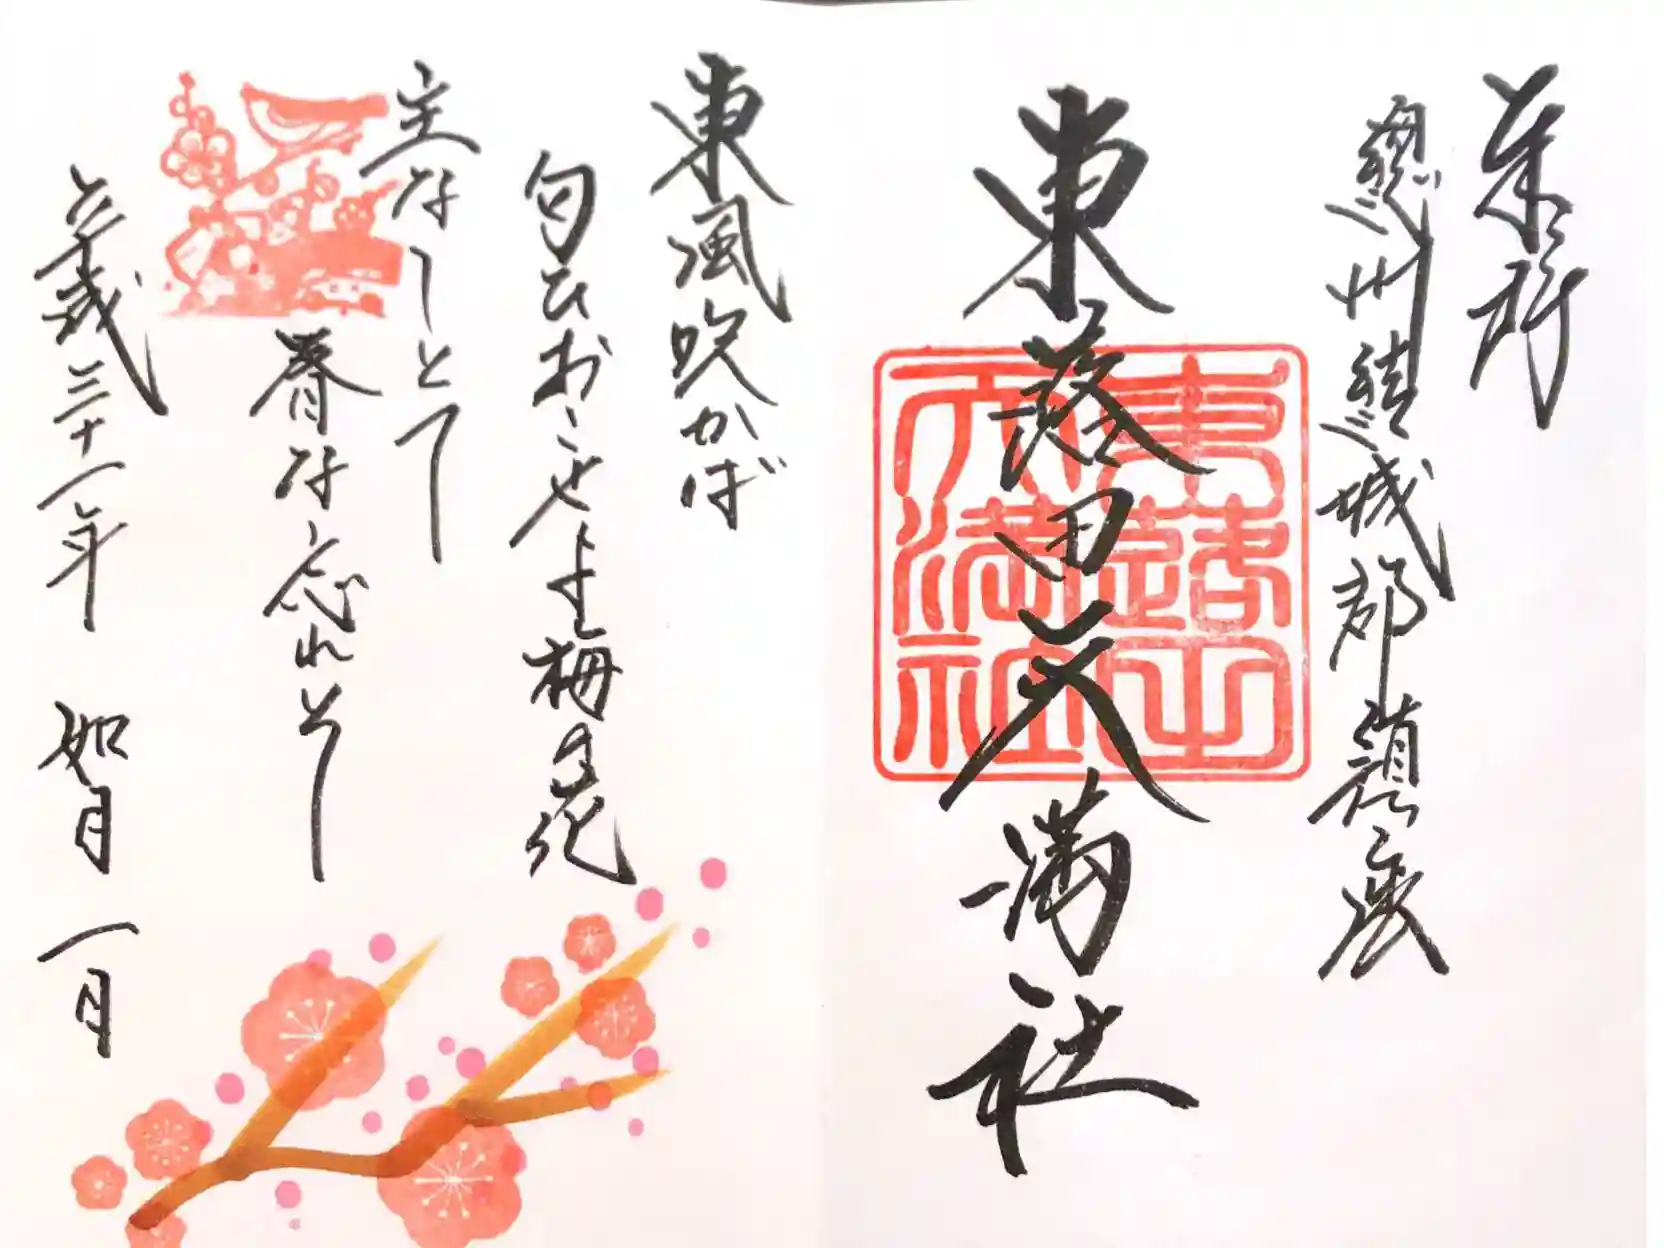 奉拝
總州結城郡鎮座
東蕗田天満社
東蕗田天満社
東風吹かば
匂ひおこせよ梅の花
主なしとて
春な忘れそ
平成三十一年 如月 一日